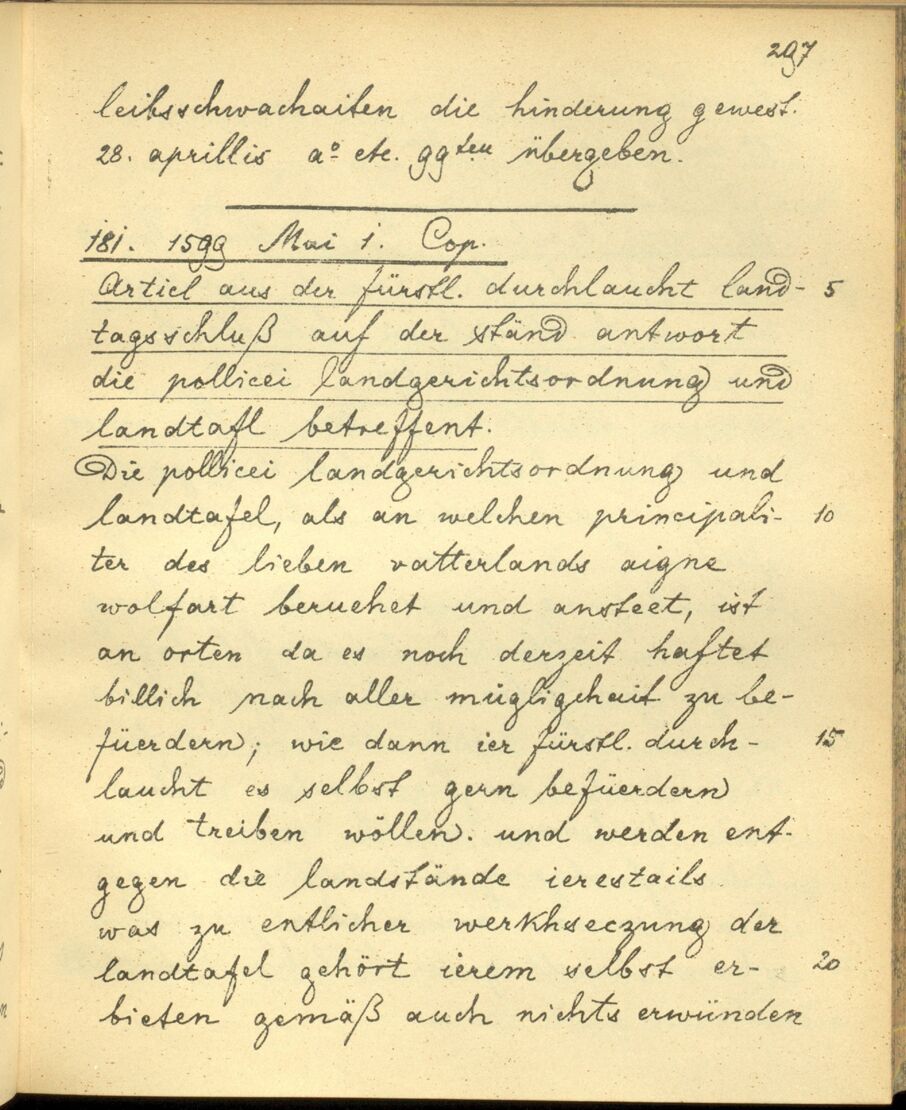 297
leibsschwachaiten die hinderung gewest.
28. aprillis aº etc. 99ten übergeben.
181. 1599 Mai 1. Cop.
Articl aus der fürstl. durchlaucht land- 5
tagsschluß auf der ständ antwort
die pollicei landgerichtsordnung und
landtafl betreffent.
Die pollicei landgerichtsordnung und
landtafel, als an welchen principali- 10
ter des lieben vatterlands aigne
wolfart beruehet und ansteet, ist
an orten da es noch derzeit haftet
billich nach aller mügligchait zu be-
füerdern; wie dann ier fürstl. durch- 15
laucht es selbst gern befüerdern
und treiben wöllen. und werden ent-
gegen die landstände ierestails
was zu entlicher werkhseczung der
landtafel gehört ierem selbst er- 20
bieten gemäß auch nichts erwünden